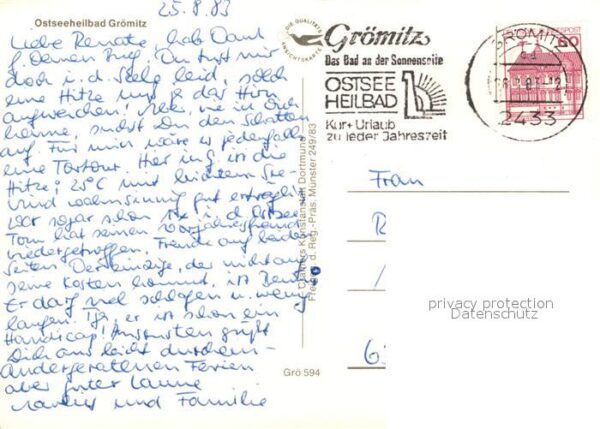 25.8.83
Ostseeheilbad Grömitz
Liebe Renate, hab Dank
f. Deinen Brief. Du tust mir
doch i. d. Seele leid, solch
eine Hitze und ja das Hirn
anzuwerfen! Nee, wie ich Dich
kenne, suchst Du den Schatten
auf. Für mich wäre es jedenfalls
eine Tortour. Hier ist die
Hitze: 25°C und leichtem See-
wind wahnsinnig gut erträglich.
War sogar schon i. d. Ostsee.
Tom hat seinen Vorjahresfreund
wiedergetroffen. Freude auf beiden
Seiten. Der einzige, der nicht auf
seine Kosten kommt, ist
Er darf viel schlafen u. wenig
laufen. Tja, er ist schon ein
Handicap! Ansonsten grüßt
Dich aus leicht durchein-
andergeratenen Ferien
aber guter Laune
und Familie
DIE QUALITÄTS
ANSICHTSKARTE
Grömitz
Das Bad an der Sonnenseite
OSTSEE
HEILBAD
Kur+Urlaub
zu jeder Jahreszeit
GRÖMITZ
2433
60
Cramers Kunstanstalt Dortmund
Freig. d. Reg.-Präs. Münster 249/83
Grö 594
Frau
R
6
privacy protection
Datenschutz